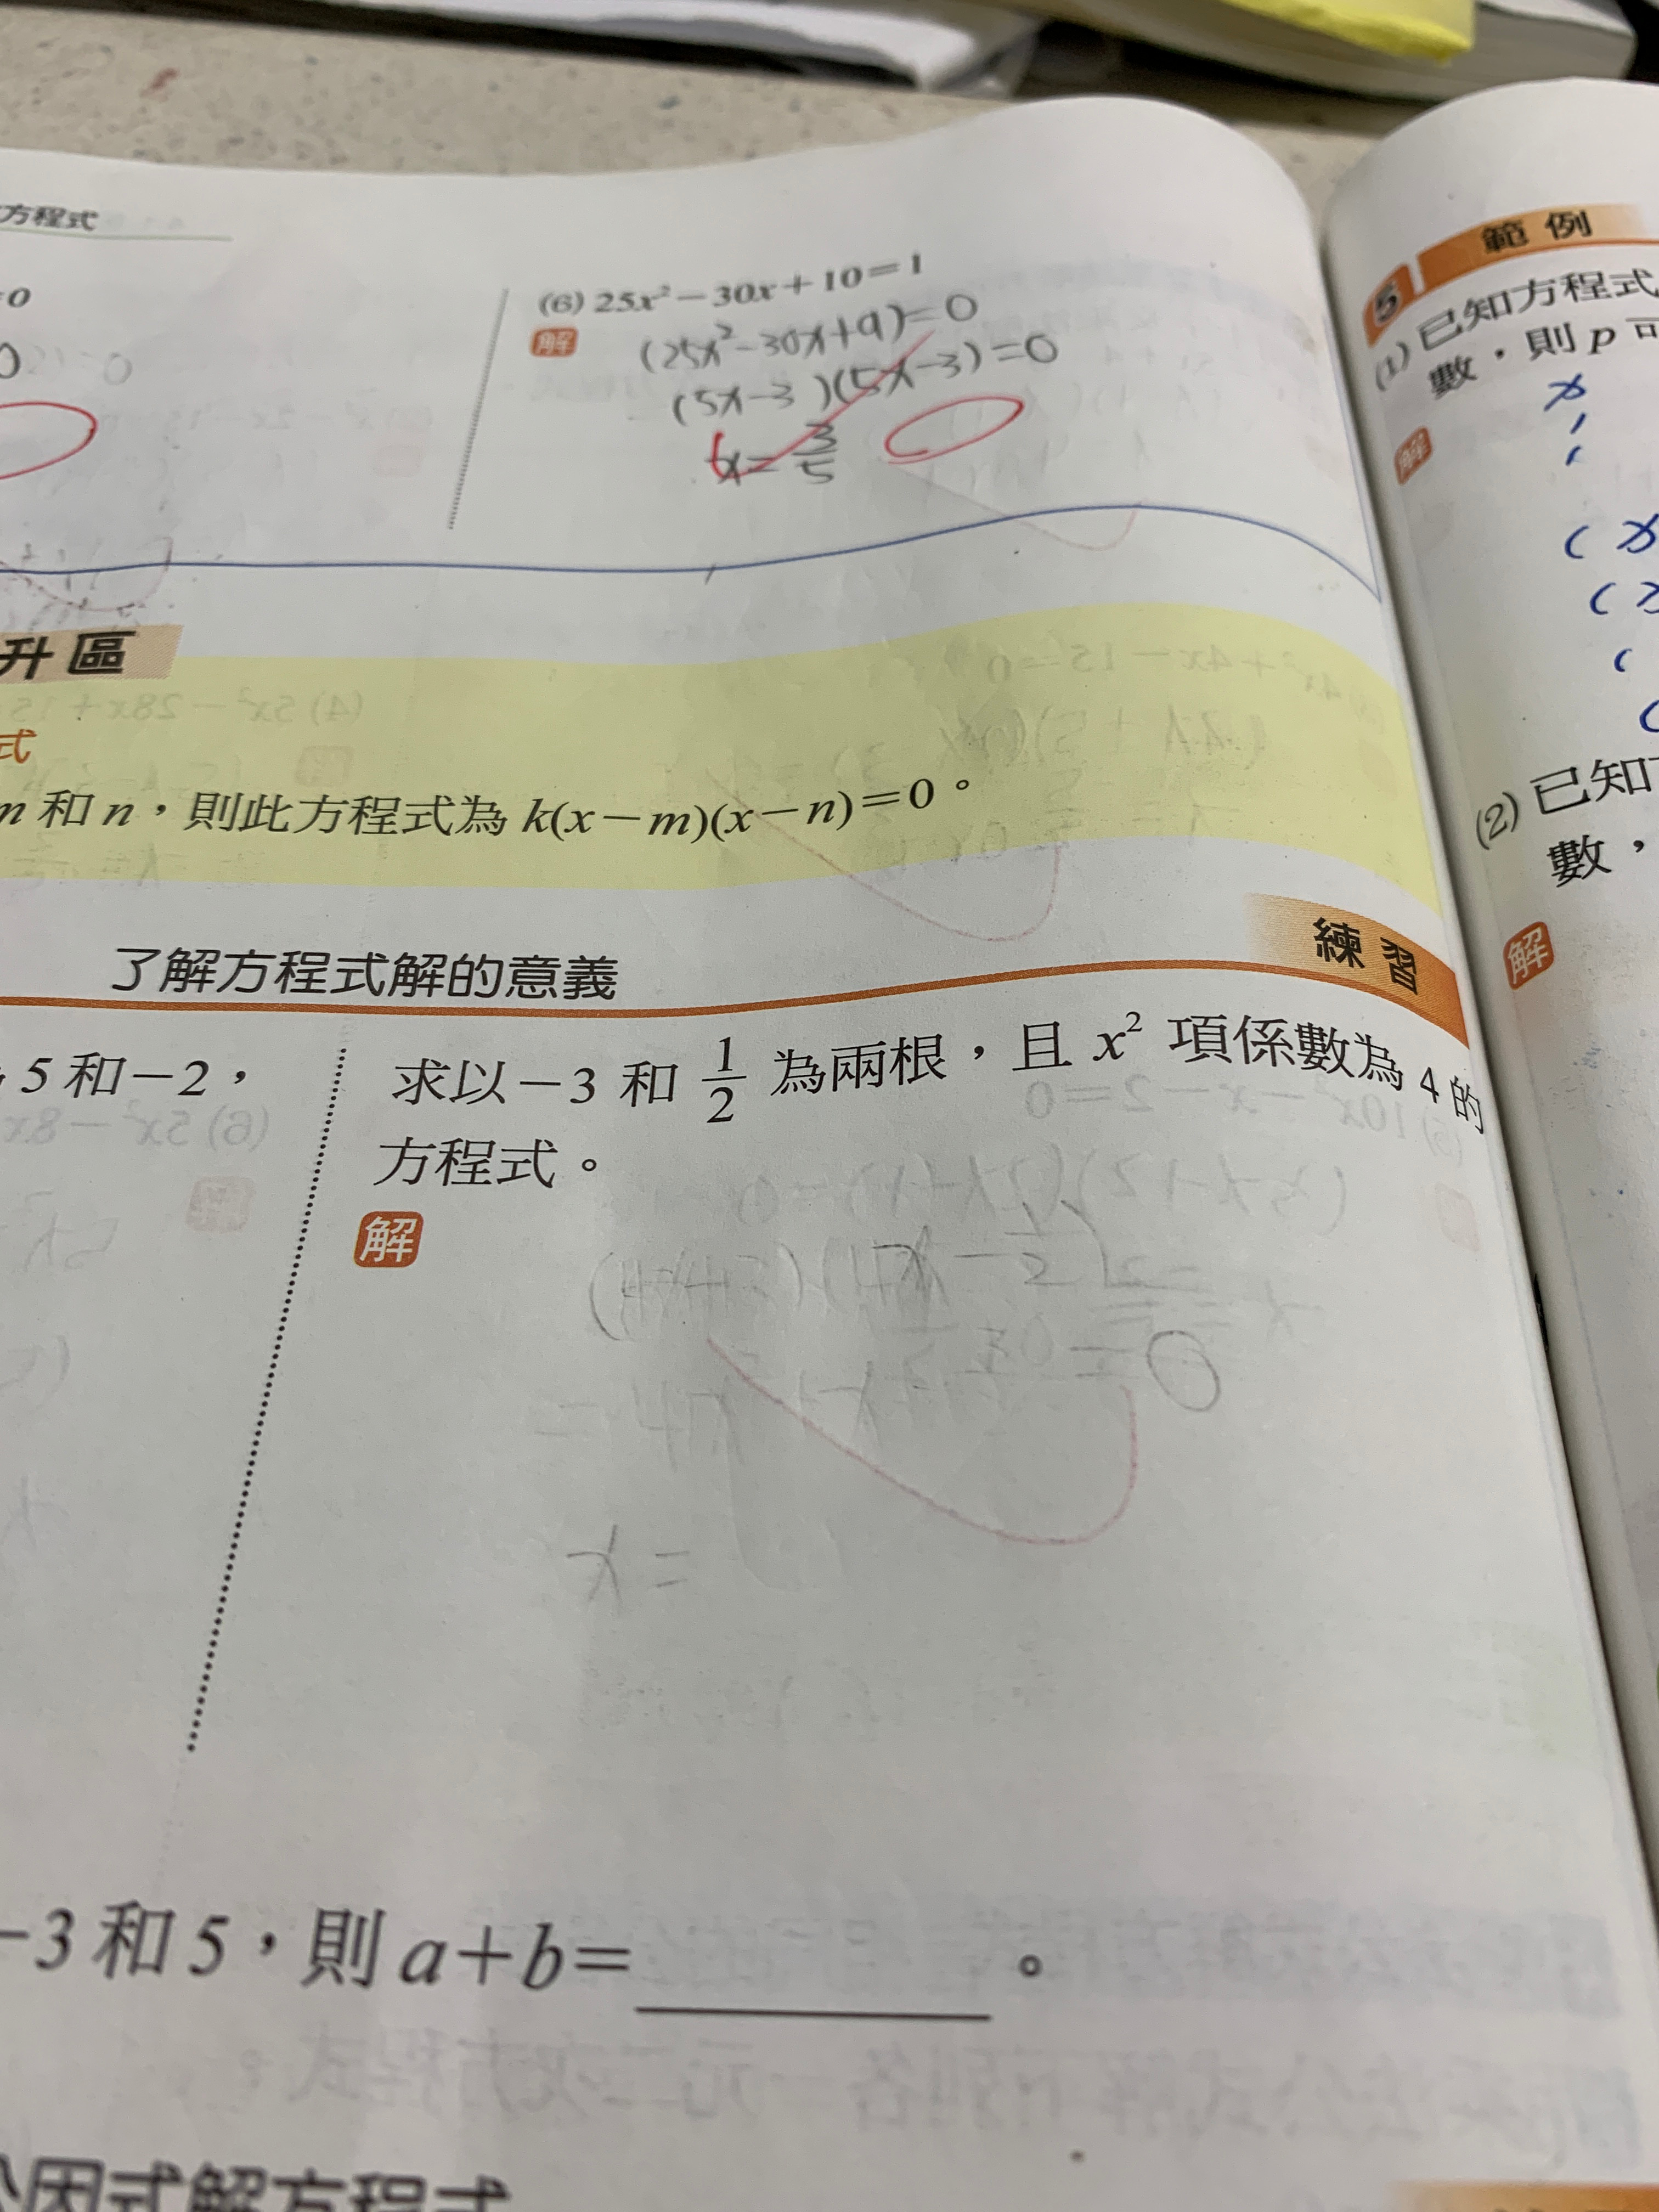 方程式
=0
0
(6) 25x²－30x＋10＝1
解
(25x²-30x+9)=0
(5x-3)(5x-3)=0
x=3/5
升區
式
m 和 n，則此方程式為 k(x－m)(x－n)＝0。
了解方程式解的意義
練習
5 和－2，
求以－3 和 1/2 為兩根，且 x² 項係數為 4 的
方程式。
解
－3 和 5，則 a＋b＝＿＿＿＿。
公因式解方程式
範例
5
(1) 已知方程式
數，則 p 可
解
(2) 已知
數，
解